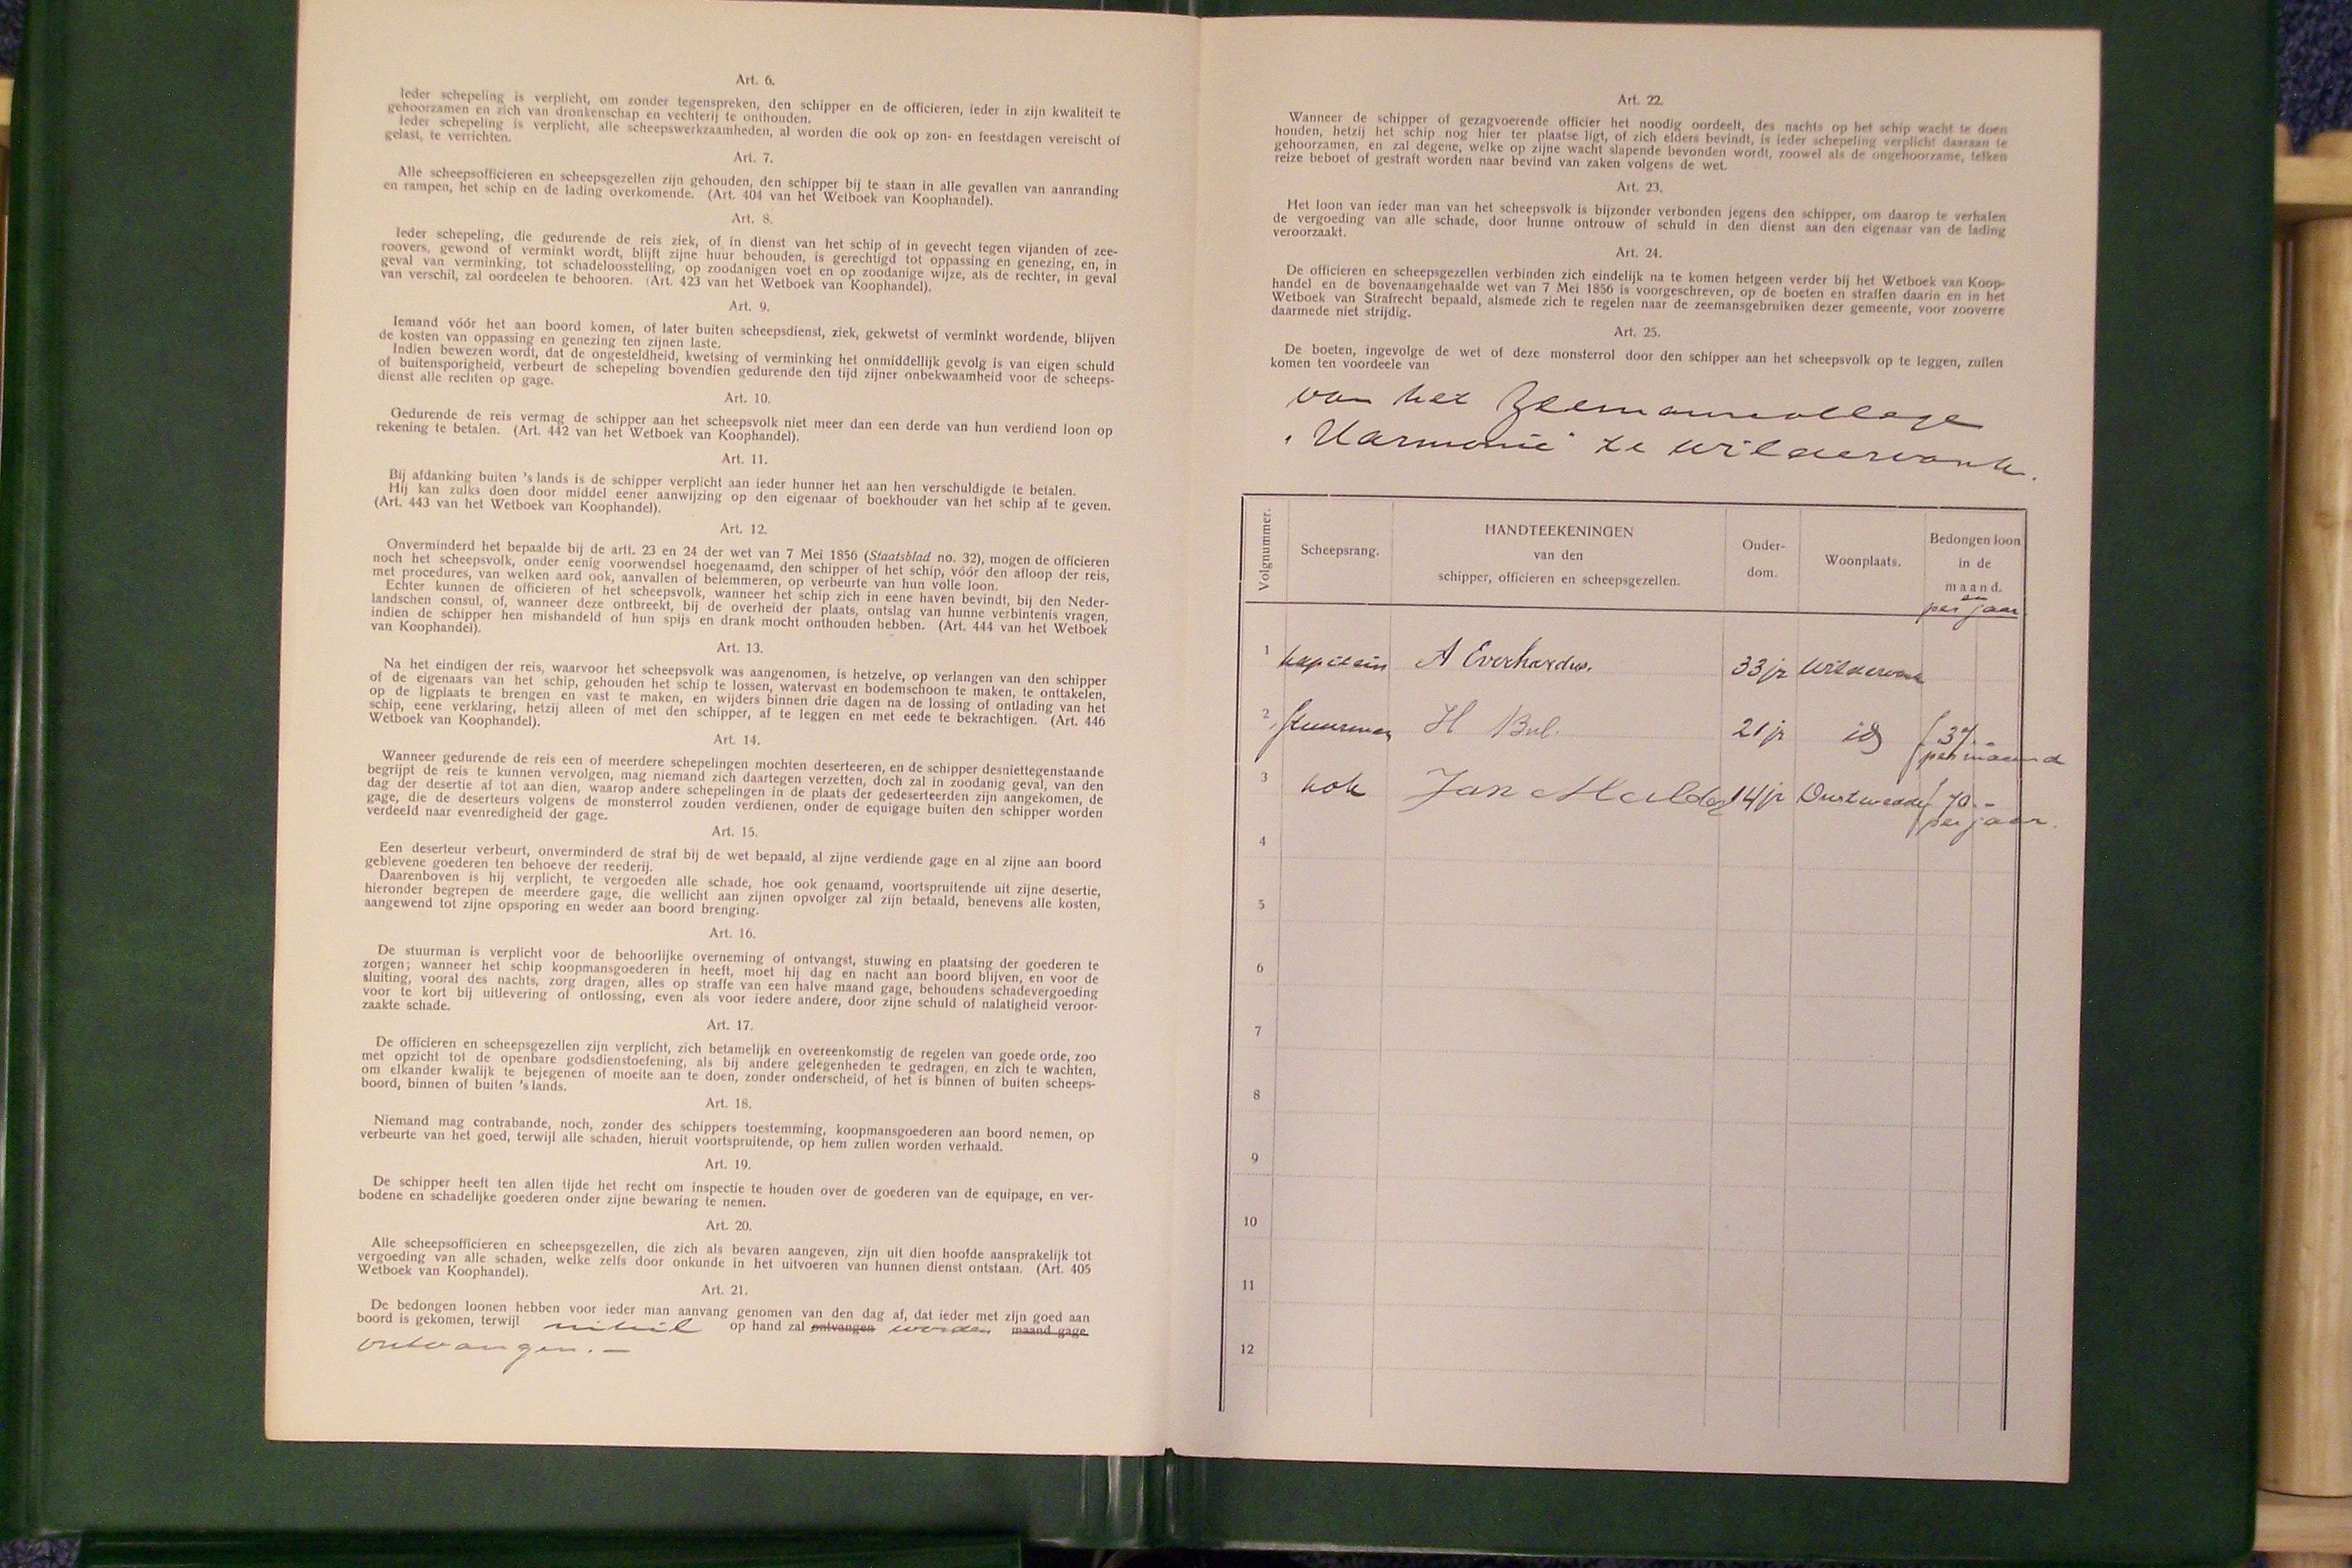 Art. 6.
Ieder schepeling is verplicht, om zonder tegenspreken, den schipper en de officieren, ieder in zijn kwaliteit te
gehoorzamen en zich van dronkenschap en vechterij te onthouden.
Ieder schepeling is verplicht, alle scheepswerkzaamheden, al worden die ook op zon- en feestdagen vereischt of
gelast, te verrichten.
Art. 7.
Alle scheepsofficieren en scheepsgezellen zijn gehouden, den schipper bij te staan in alle gevallen van aanranding
en rampen, het schip en de lading overkomende. (Art. 404 van het Wetboek van Koophandel).
Art. 8.
Ieder schepeling, die gedurende de reis ziek, of in dienst van het schip of in gevecht tegen vijanden of zee-
roovers, gewond of verminkt wordt, blijft zijne huur behouden, is gerechtigd tot oppassing en genezing, en, in
geval van verminking, tot schadeloosstelling, op zoodanigen voet en op zoodanige wijze, als de rechter, in geval
van verschil, zal oordeelen te behooren. (Art. 423 van het Wetboek van Koophandel).
Art. 9.
Iemand vóór het aan boord komen, of later buiten scheepsdienst, ziek, gekwetst of verminkt wordende, blijven
de kosten van oppassing en genezing ten zijnen laste.
Indien bewezen wordt, dat de ongesteldheid, kwetsing of verminking het onmiddellijk gevolg is van eigen schuld
of buitensporigheid, verbeurt de schepeling bovendien gedurende den tijd zijner onbekwaamheid voor de scheeps-
dienst alle rechten op gage.
Art. 10.
Gedurende de reis vermag de schipper aan het scheepsvolk niet meer dan een derde van hun verdiend loon op
rekening te betalen. (Art. 442 van het Wetboek van Koophandel).
Art. 11.
Bij afdanking buiten 's lands is de schipper verplicht aan ieder hunner het aan hen verschuldigde te betalen.
Hij kan zulks doen door middel eener aanwijzing op den eigenaar of boekhouder van het schip af te geven.
(Art. 443 van het Wetboek van Koophandel).
Art. 12.
Onverminderd het bepaalde bij de artt. 23 en 24 der wet van 7 Mei 1856 (Staatsblad no. 32), mogen de officieren
noch het scheepsvolk, onder eenig voorwendsel hoegenaamd, den schipper of het schip, vóór den afloop der reis,
met procedures, van welken aard ook, aanvallen of belemmeren, op verbeurte van hun volle loon.
Echter kunnen de officieren of het scheepsvolk, wanneer het schip zich in eene haven bevindt, bij den Neder-
landschen consul, of, wanneer deze ontbreekt, bij de overheid der plaats, ontslag van hunne verbintenis vragen,
indien de schipper hen mishandeld of hun spijs en drank mocht onthouden hebben. (Art. 444 van het Wetboek
van Koophandel).
Art. 13.
Na het eindigen der reis, waarvoor het scheepsvolk was aangenomen, is hetzelve, op verlangen van den schipper
of de eigenaars van het schip, gehouden het schip te lossen, watervast en bodemschoon te maken, te onttakelen,
op de ligplaats te brengen en vast te maken, en wijders binnen drie dagen na de lossing of ontlading van het
schip, eene verklaring, hetzij alleen of met den schipper, af te leggen en met eede te bekrachtigen. (Art. 446
Wetboek van Koophandel).
Art. 14.
Wanneer gedurende de reis een of meerdere schepelingen mochten deserteeren, en de schipper desniettegenstaande
begrijpt de reis te kunnen vervolgen, mag niemand zich daartegen verzetten, doch zal in zoodanig geval, van den
dag der desertie af tot aan dien, waarop andere schepelingen in de plaats der gedeserteerden zijn aangekomen, de
gage, die de deserteurs volgens de monsterrol zouden verdienen, onder de equigage buiten den schipper worden
verdeeld naar evenredigheid der gage.
Art. 15.
Een deserteur verbeurt, onverminderd de straf bij de wet bepaald, al zijne verdiende gage en al zijne aan boord
geblevene goederen ten behoeve der reederij.
Daarenboven is hij verplicht, te vergoeden alle schade, hoe ook genaamd, voortspruitende uit zijne desertie,
hieronder begrepen de meerdere gage, die wellicht aan zijnen opvolger zal zijn betaald, benevens alle kosten,
aangewend tot zijne opsporing en weder aan boord brenging.
Art. 16.
De stuurman is verplicht voor de behoorlijke overneming of ontvangst, stuwing en plaatsing der goederen te
zorgen; wanneer het schip koopmansgoederen in heeft, moet hij dag en nacht aan boord blijven, en voor de
sluiting, vooral des nachts, zorg dragen, alles op straffe van een halve maand gage, behoudens schadevergoeding
voor te kort bij uitlevering of ontlossing, even als voor iedere andere, door zijne schuld of nalatigheid veroor-
zaakte schade.
Art. 17.
De officieren en scheepsgezellen zijn verplicht, zich betamelijk en overeenkomstig de regelen van goede orde, zoo
met opzicht tot de openbare godsdienstoefening, als bij andere gelegenheden te gedragen, en zich te wachten,
om elkander kwalijk te bejegenen of moeite aan te doen, zonder onderscheid, of het is binnen of buiten scheeps-
boord, binnen of buiten 's lands.
Art. 18.
Niemand mag contrabande, noch, zonder des schippers toestemming, koopmansgoederen aan boord nemen, op
verbeurte van het goed, terwijl alle schaden, hieruit voortspruitende, op hem zullen worden verhaald.
Art. 19.
De schipper heeft ten allen tijde het recht om inspectie te houden over de goederen van de equipage, en ver-
bodene en schadelijke goederen onder zijne bewaring te nemen.
Art. 20.
Alle scheepsofficieren en scheepsgezellen, die zich als bevaren aangeven, zijn uit dien hoofde aansprakelijk tot
vergoeding van alle schaden, welke zelfs door onkunde in het uitvoeren van hunnen dienst ontstaan. (Art. 405
Wetboek van Koophandel).
Art. 21.
De bedongen loonen hebben voor ieder man aanvang genomen van den dag af, dat ieder met zijn goed aan
boord is gekomen, terwijl nihil op hand zal ontvangen worden maand gage
ontvangen. —
Art. 22.
Wanneer de schipper of gezagvoerende officier het noodig oordeelt, des nachts op het schip wacht te doen
houden, hetzij het schip nog hier ter plaatse ligt, of zich elders bevindt, is ieder schepeling verplicht daaraan te
gehoorzamen, en zal degene, welke op zijne wacht slapende bevonden wordt, zoowel als de ongehoorzame, telken
reize beboet of gestraft worden naar bevind van zaken volgens de wet.
Art. 23.
Het loon van ieder man van het scheepsvolk is bijzonder verbonden jegens den schipper, om daarop te verhalen
de vergoeding van alle schade, door hunne ontrouw of schuld in den dienst aan den eigenaar van de lading
veroorzaakt.
Art. 24.
De officieren en scheepsgezellen verbinden zich eindelijk na te komen hetgeen verder bij het Wetboek van Koop-
handel en de bovenaangehaalde wet van 7 Mei 1856 is voorgeschreven, op de boeten en straffen daarin en in het
Wetboek van Strafrecht bepaald, alsmede zich te regelen naar de zeemansgebruiken dezer gemeente, voor zooverre
daarmede niet strijdig.
Art. 25.
De boeten, ingevolge de wet of deze monsterrol door den schipper aan het scheepsvolk op te leggen, zullen
komen ten voordeele van
van het Zeemanscollege
"Harmonie" te Wildervank.
Volgnummer. Scheepsrang. HANDTEEKENINGEN van den schipper, officieren en scheepsgezellen. Ouder-dom. Woonplaats. Bedongen loon in de maand. en per jaar
1 kapitein A Everhardus. 33 jr Wildervank
2 Stuurman H Bul. 21 jr id ƒ 37.- per maand
3 kok Jan Mulder 14 jr Onstwedde ƒ 70.- per jaar.
4
5
6
7
8
9
10
11
12